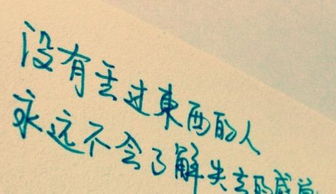 没有丢过東西的人
永远不会了解失去的感覚